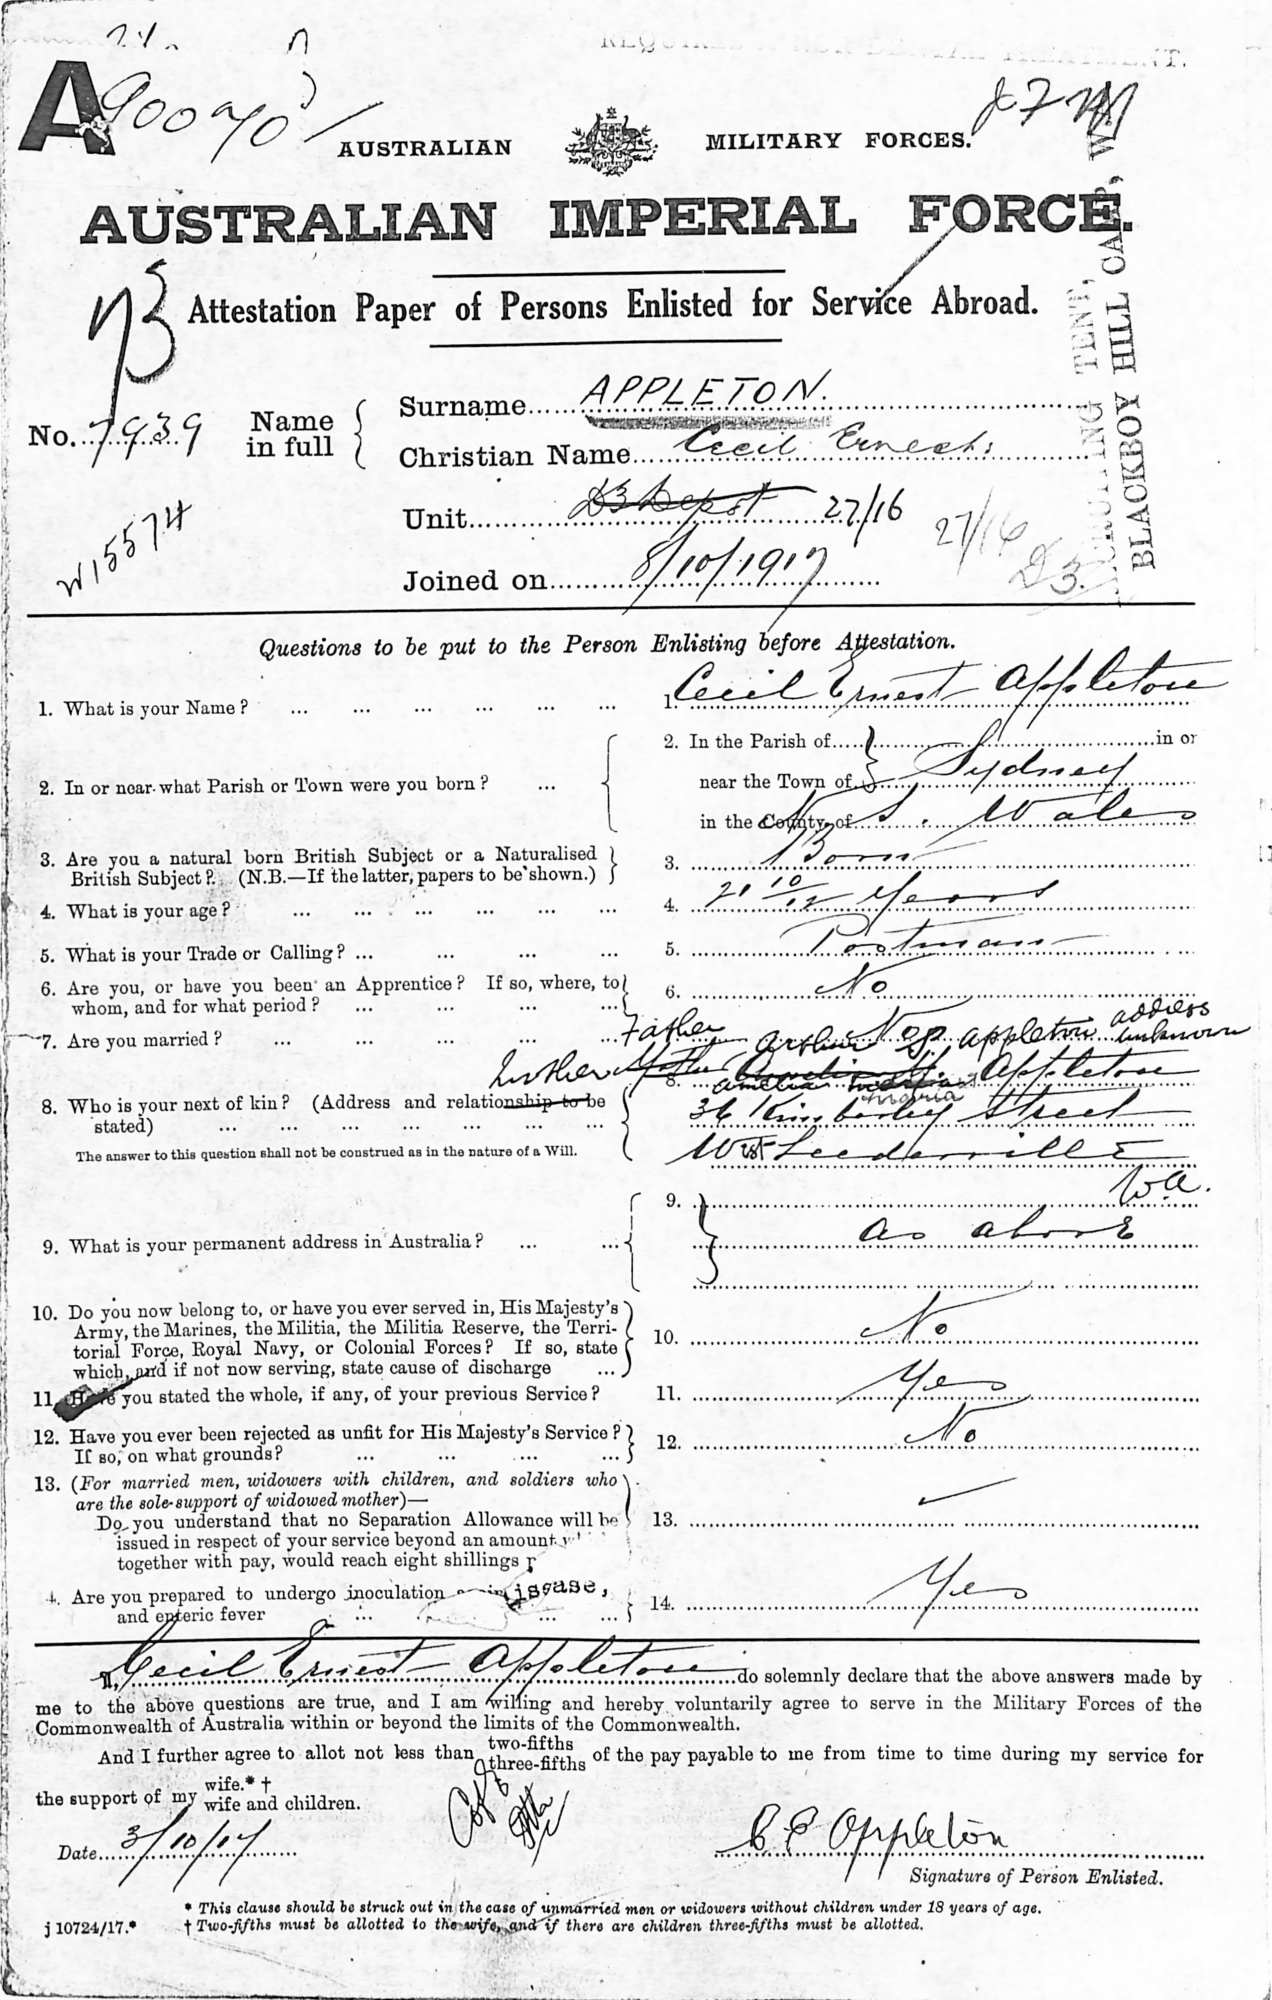 A
AUSTRALIAN MILITARY FORCES.
AUSTRALIAN IMPERIAL FORCE.
Attestation Paper of Persons Enlisted for Service Abroad.
TENT,
BLACKBOY HILL CAMP, W.
No. 7939 Name in full
Surname APPLETON.
Christian Name Cecil Ernest.
W15574
Unit D3 Depot 27/16
27/16
D3.
Joined on 8/10/1917
Questions to be put to the Person Enlisting before Attestation.
1. What is your Name? ... 1. Cecil Ernest Appleton
2. In or near what Parish or Town were you born? ... 2. In the Parish of in or
near the Town of Sydney
in the County of N. S. Wales
3. Are you a natural born British Subject or a Naturalised
British Subject? (N.B.—If the latter, papers to be shown.) 3. Born
4. What is your age? ... 4. 21 10/12 Years
5. What is your Trade or Calling? ... 5. Postman
6. Are you, or have you been an Apprentice? If so, where, to
whom, and for what period? ... 6. No
7. Are you married? ... No
Father Arthur S. Appleton address unknown
Mother Appleton
Amelia Maria
8. Who is your next of kin? (Address and relationship to be
stated) ... 8. 36 Kimberley Street
West Leederville
W.A.
The answer to this question shall not be construed as in the nature of a Will.
9. What is your permanent address in Australia? ... 9. As above
10. Do you now belong to, or have you ever served in, His Majesty's
Army, the Marines, the Militia, the Militia Reserve, the Terri-
torial Force, Royal Navy, or Colonial Forces? If so, state
which, and if not now serving, state cause of discharge ... 10. No
11. Have you stated the whole, if any, of your previous Service? 11. Yes
12. Have you ever been rejected as unfit for His Majesty's Service?
If so, on what grounds? ... 12. No
13. (For married men, widowers with children, and soldiers who
are the sole support of widowed mother)—
Do you understand that no Separation Allowance will be
issued in respect of your service beyond an amount
together with pay, would reach eight shillings 13.
4. Are you prepared to undergo inoculation disease,
and enteric fever ... 14. Yes
I, Cecil Ernest Appleton do solemnly declare that the above answers made by
me to the above questions are true, and I am willing and hereby voluntarily agree to serve in the Military Forces of the
Commonwealth of Australia within or beyond the limits of the Commonwealth.
And I further agree to allot not less than two-fifths three-fifths of the pay payable to me from time to time during my service for
the support of my wife.*† wife and children.
Date 3/10/17
C E Appleton
Signature of Person Enlisted.
* This clause should be struck out in the case of unmarried men or widowers without children under 18 years of age.
† Two-fifths must be allotted to the wife, and if there are children three-fifths must be allotted.
j 10724/17.*